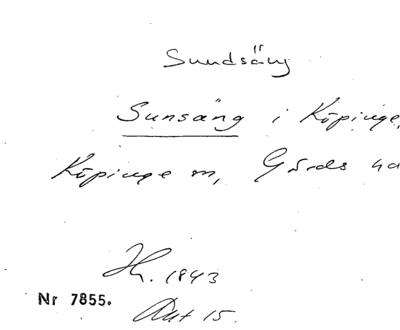 Sundsäng
Sunsäng i Köpinge,
Köpinge sn, Gärds ha
Hh. 1843
Nr 7855.
Akt 15.